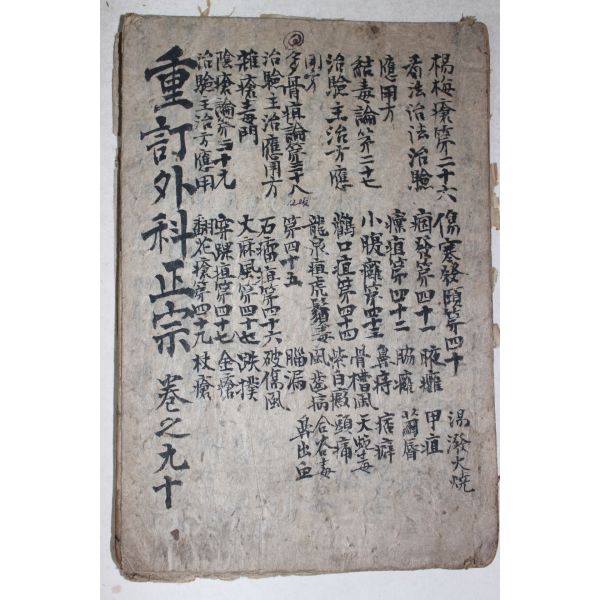 楊梅瘡第二十六
看法治法治驗
應用方
結毒論第二十七
治驗主治方應
用方
多骨疽論第二十八
治驗主治應用方
雜瘡毒門
陰瘡論第三十九
治驗主治方應用
傷寒發頤第四十
痼發第四十一
瘰疽第四十二
小腹癰第四十三
鸛口疽第四十四
龍泉疽虎鬚毒
第四十五
石榴疽第四十六
大麻風第四十七
穿踝疽第四十七
翻花瘡第四十九
腋癰
脇癰
鼻痔
骨槽風
紫白癜
風齒病
腦漏
破傷風
跌撲
金瘡
杖瘡
湯潑火燒
甲疽
繭唇
痞癖
天蛇毒
頭痛
合谷毒
鼻出血
重訂外科正宗 卷之九十